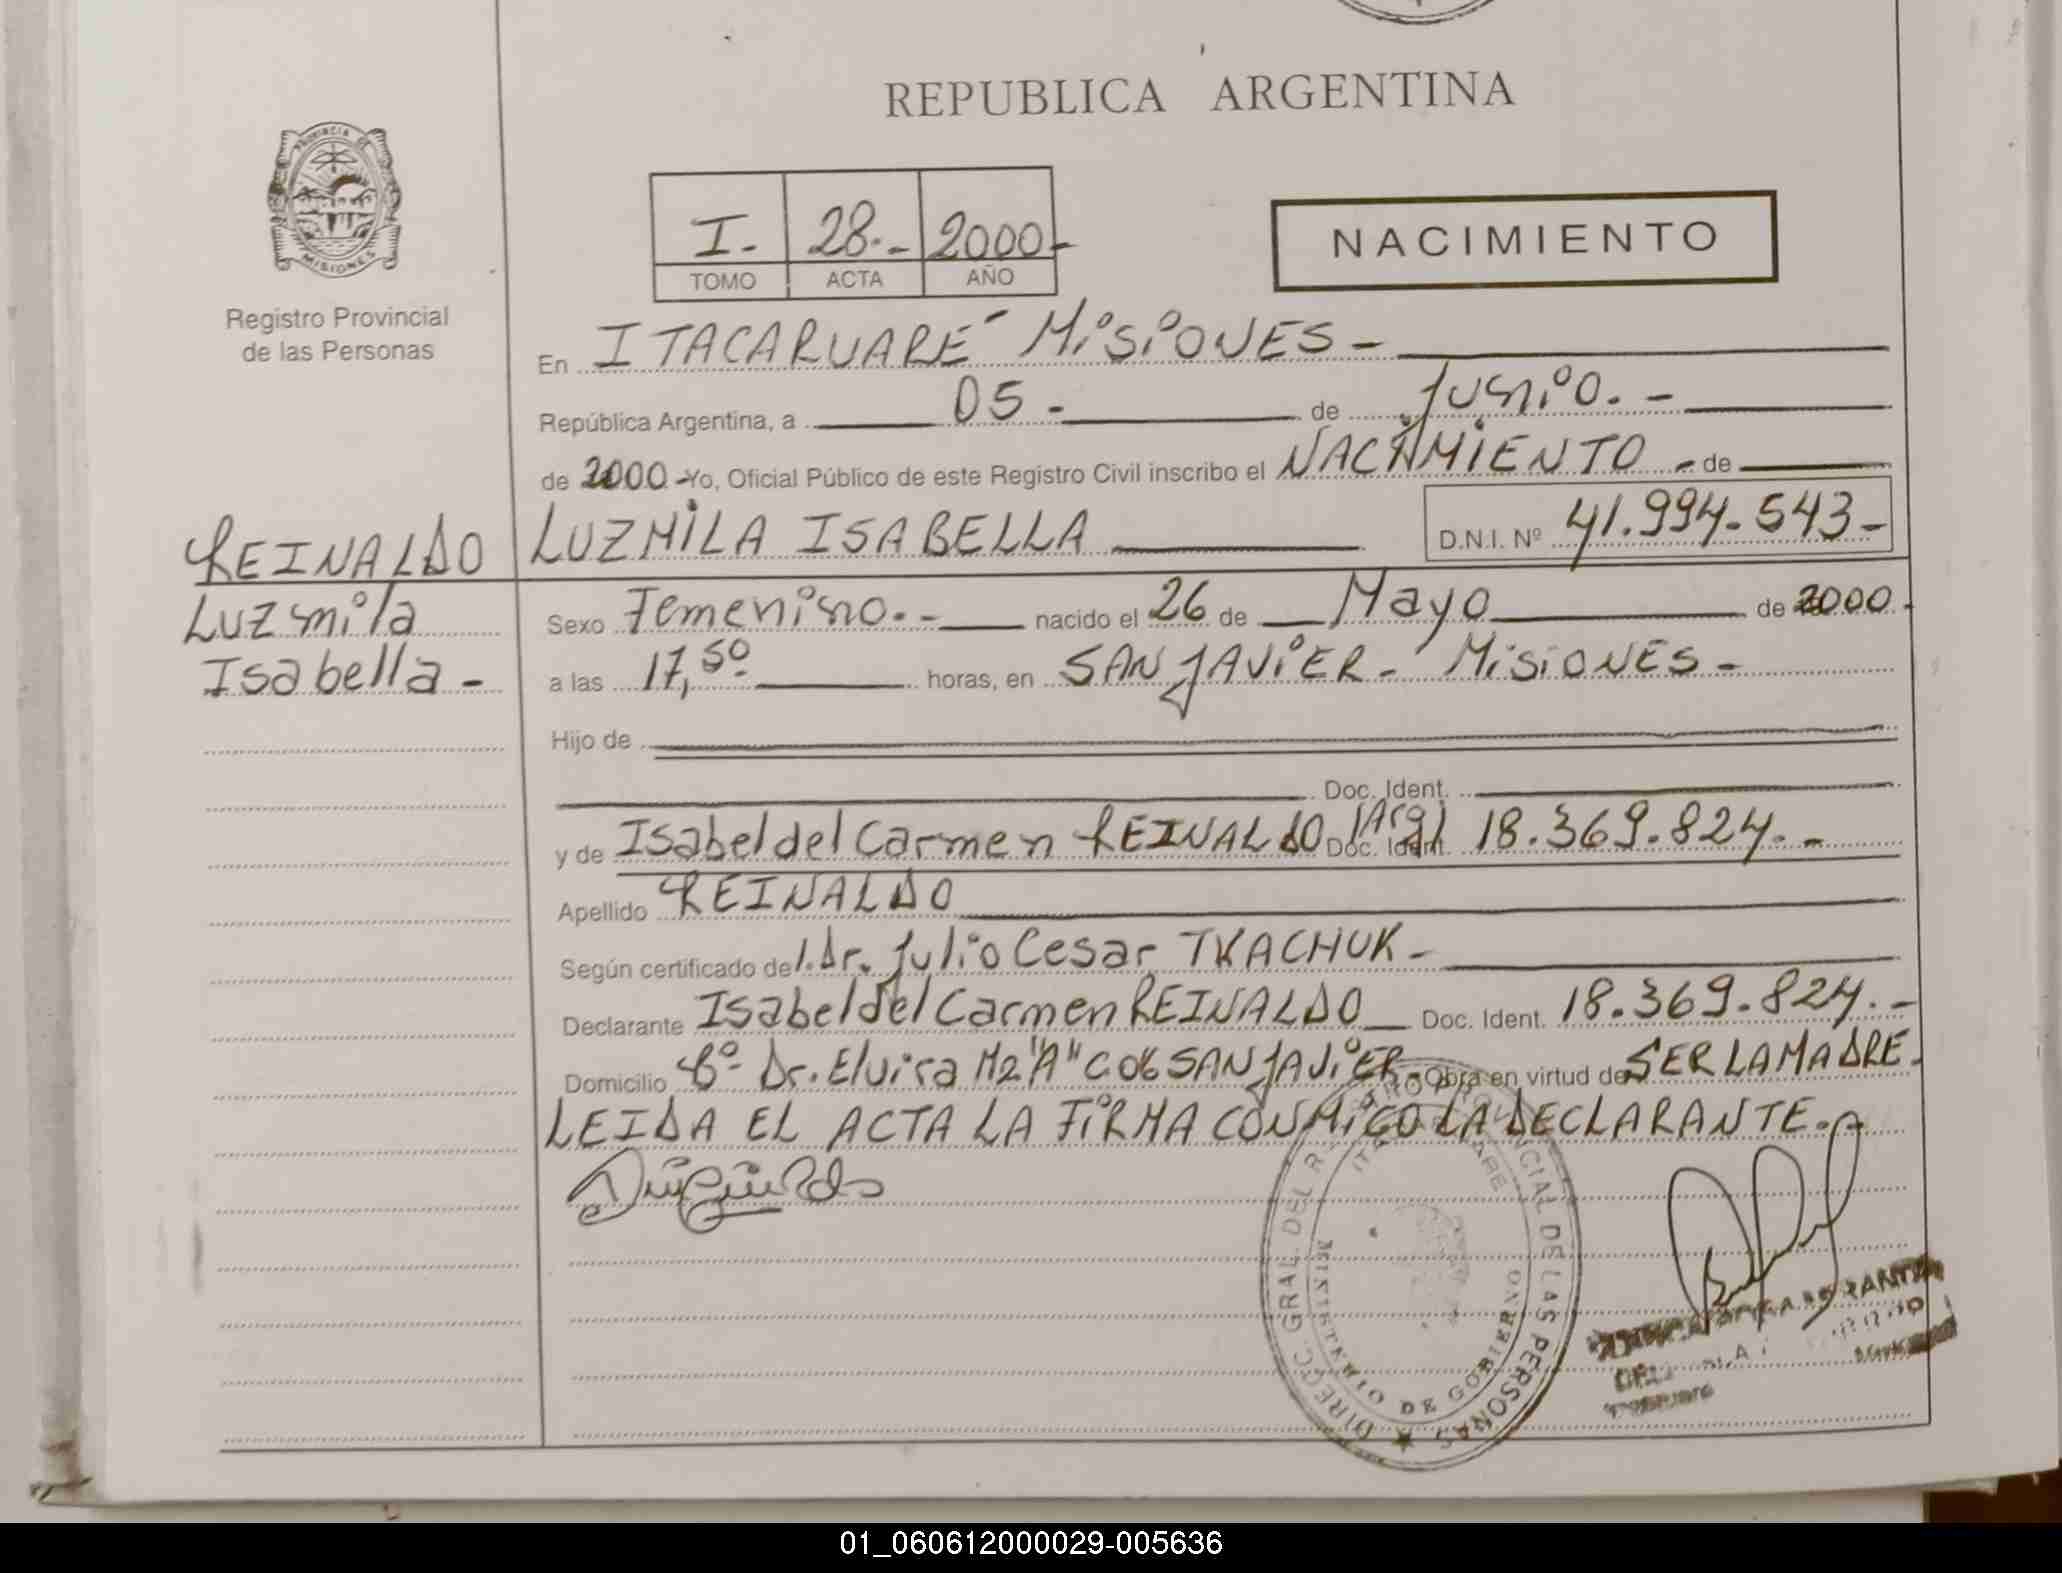 REPUBLICA ARGENTINA
PROVINCIA DE
MISIONES
Registro Provincial
de las Personas
I.- 28.- 2000-
TOMO ACTA AÑO
NACIMIENTO
En ITACARUARÉ MISIONES -
República Argentina, a 05 - de Junio. -
de 2000 - Yo, Oficial Público de este Registro Civil inscribo el NACIMIENTO - de
REINALDO LUZMILA ISABELLA D.N.I. Nº 41.994.543-
Luzmila
Isabella -
Sexo Femenino. - nacido el 26 de Mayo de 2000.
a las 17,50 horas, en SAN JAVIER - MISIONES -
Hijo de
Doc. Ident.
y de Isabel del Carmen REINALDO (Arg) Doc. Ident. 18.369.824. -
Apellido REINALDO
Según certificado de l. Dr. Julio Cesar TKACHUK -
Declarante Isabel del Carmen REINALDO Doc. Ident. 18.369.824. -
Domicilio Bº Dr. Elvira Mz "A" C 06 SAN JAVIER - Obra en virtud de SER LA MADRE.
LEIDA EL ACTA LA FIRMA CONMIGO LA DECLARANTE. -
DIRECC. GRAL. DEL REGISTRO PROVINCIAL DE LAS PERSONAS
ITACARUARE
MINISTERIO DE GOBIERNO
01_060612000029-005636